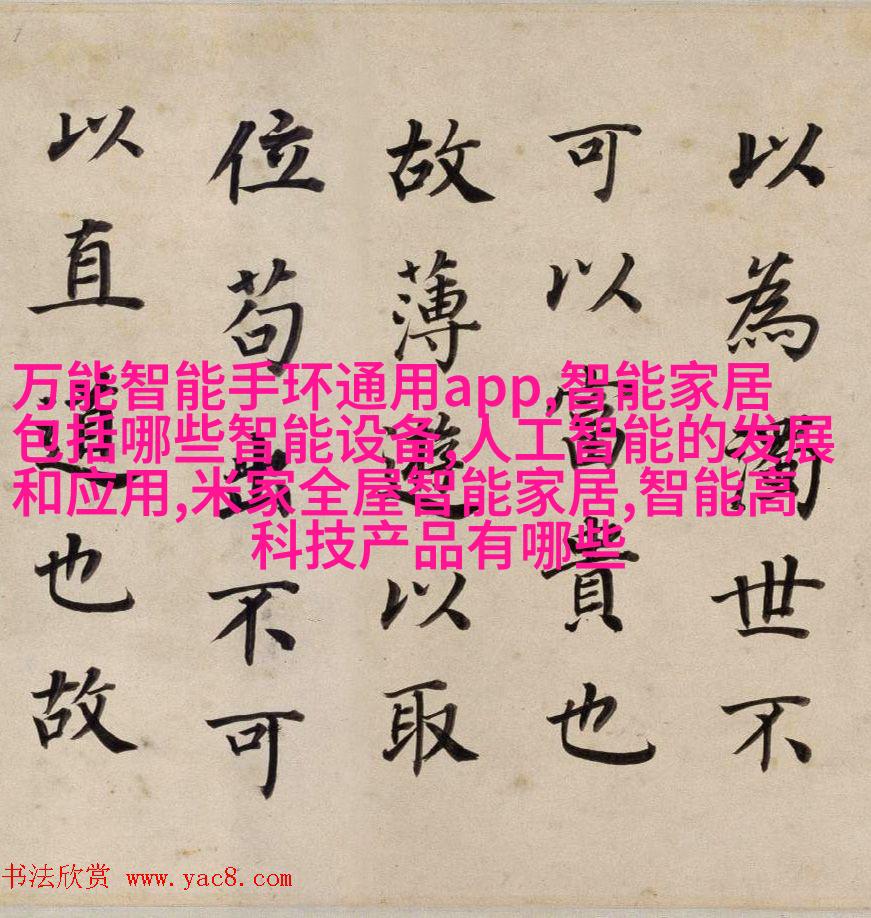 以為濁世不
可以富貴也
故薄遊以取
位苟出不可
以直道也故
万能智能手环通用app,智能家居
包括哪些智能设备,人工智能的发展
和应用,米家全屋智能家居,智能高
科技产品有哪些
书法欣赏 www.yac8.com